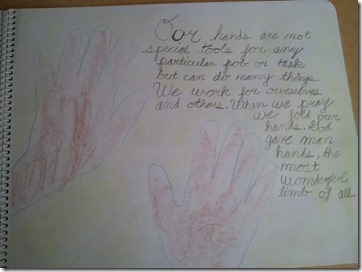 Our hands are not
special tools for any
particular job or task
but can do many things.
We work for ourselves
and others. When we pray
we fold our
hands. God
gave man
hands, the
most
wonderful
limb of all